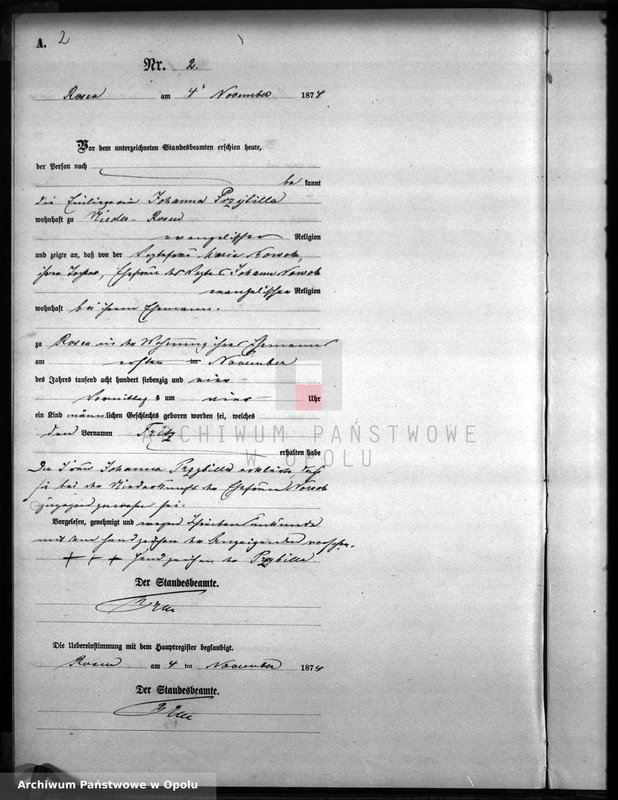 A. 2
Nr. 2.
Rosen am 4ᵗ November 1874
Vor dem unterzeichneten Standesbeamten erschien heute,
der Person nach
be kannt
die Einliegerin Johanna Przybilla
wohnhaft zu Nieder-Rosen
evangelischer Religion
und zeigte an, daß von der Maria Nowok
ihrer Tochter, Ehefrau des Johann Nowok
evangelischer Religion
wohnhaft bei ihrem Ehemanne.
zu Rosen in der Wohnung ihres Ehemannes
am ersten November
des Jahres tausend acht hundert siebenzig und vier
Vormittags um vier Uhr
ein Kind männlichen Geschlechts geboren worden sei, welches
den Vornamen Fritz
ARCHIWUM PAŃSTWOWE
W OPOLU
erhalten habe
Die Frau Johanna Przybilla erklärte daß
sie bei der Niederkunft der Ehefrau Nowok
zugegen gewesen sei.
Vorgelesen, genehmigt und wegen Schreibens Unkunde
mit dem Handzeichen der Anzeigenden versehen.
+ + + Handzeichen der Przybilla
Der Standesbeamte.
Die Uebereinstimmung mit dem Hauptregister beglaubigt.
Rosen am 4 ten November 1874
Der Standesbeamte.
Archiwum Państwowe w Opolu